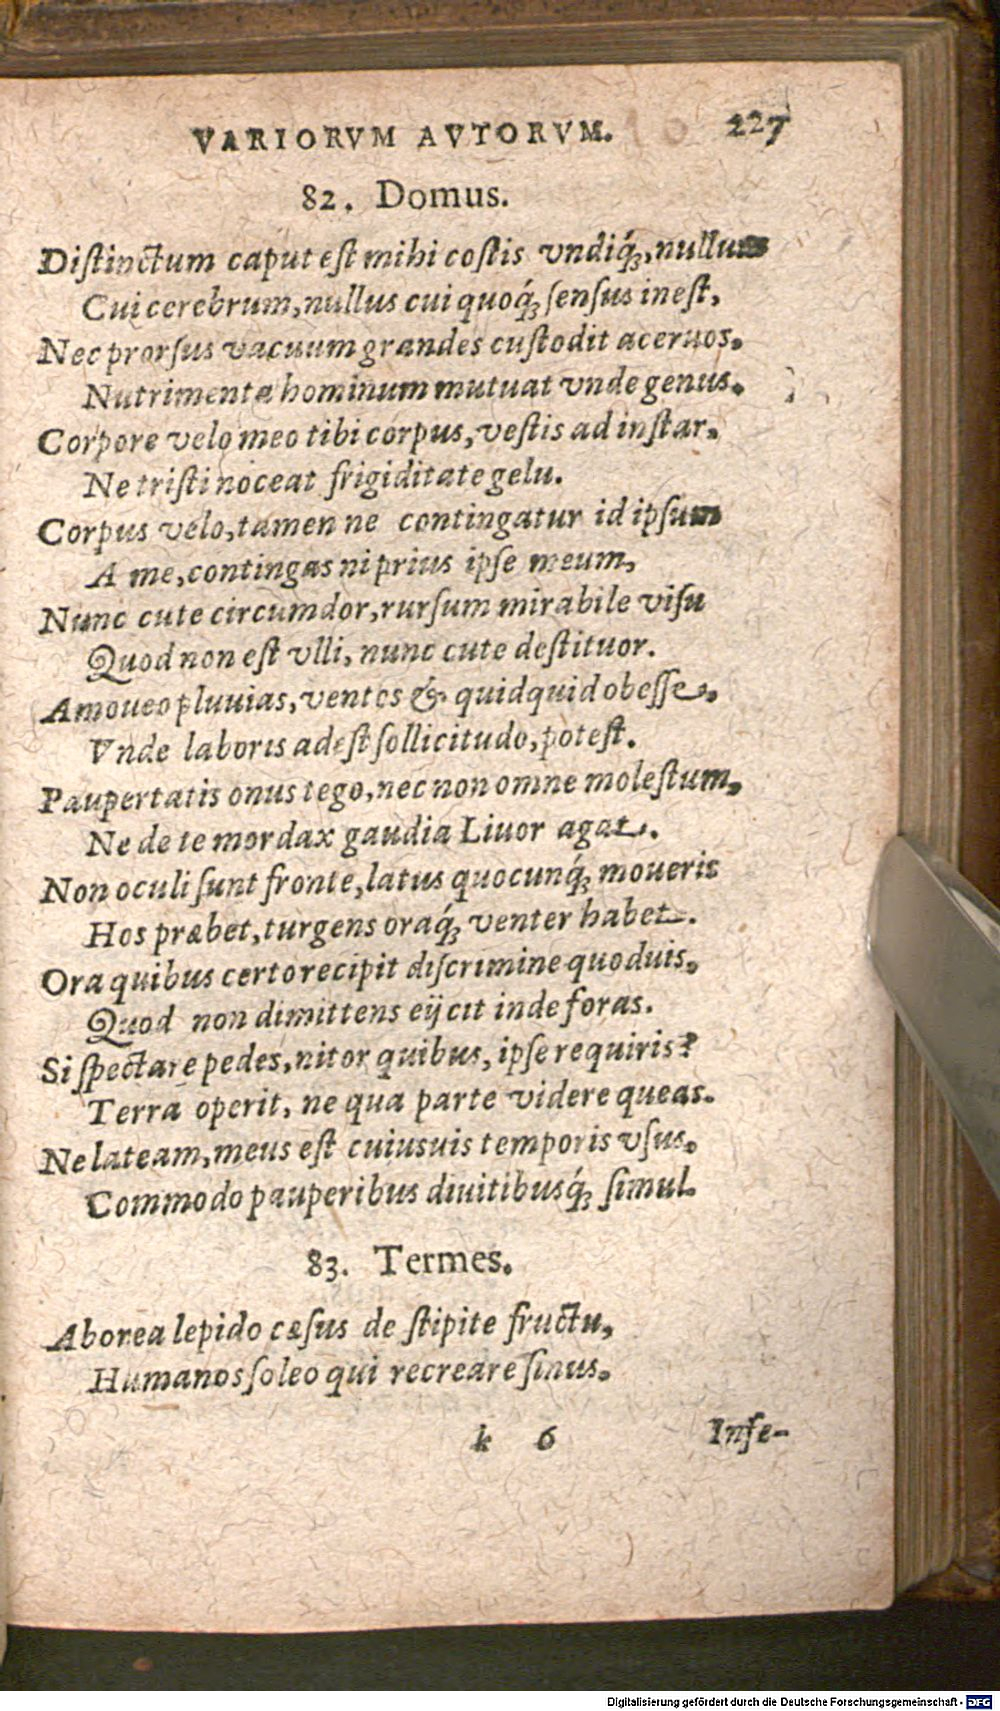 VARIORVM AVTORVM. 227
82. Domus.
Diſtinctum caput eſt mihi coſtis vndiq́ꝫ, nullum
Cui cerebrum, nullus cui quoq́ꝫ ſenſus ineſt,
Nec prorſus vacuum grandes cuſtodit aceruos.
Nutrimenta hominum mutuat vnde genus.
Corpore velo meo tibi corpus, veſtis ad inſtar.
Ne triſti noceat frigiditate gelu.
Corpus velo, tamen ne contingatur id ipſum
A me, contingas ni prius ipſe meum,
Nunc cute circumdor, rurſum mirabile viſu
Quod non eſt vlli, nunc cute deſtituor.
Amoueo pluuias, ventos & quidquid obeſſe.
Vnde laboris adeſt ſollicitudo, poteſt.
Paupertatis onus tego, nec non omne moleſtum,
Ne de te mordax gaudia Liuor agat.
Non oculi ſunt fronte, latus quocunq́ꝫ moueris
Hos præbet, turgens oraq́ꝫ venter habet.
Ora quibus certo recipit diſcrimine quoduis,
Quod non dimittens eijcit inde foras.
Si ſpectare pedes, nitor quibus, ipſe requiris?
Terra operit, ne qua parte videre queas.
Ne lateam, meus eſt cuiusuis temporis vſus,
Commodo pauperibus diuitibusq́ꝫ ſimul.
83. Termes.
Aborea lepido cæſus de ſtipite fructu,
Humanos ſoleo qui recreare ſinus.
k 6 Inſe-
Digitalisierung gefördert durch die Deutsche Forschungsgemeinschaft - DFG